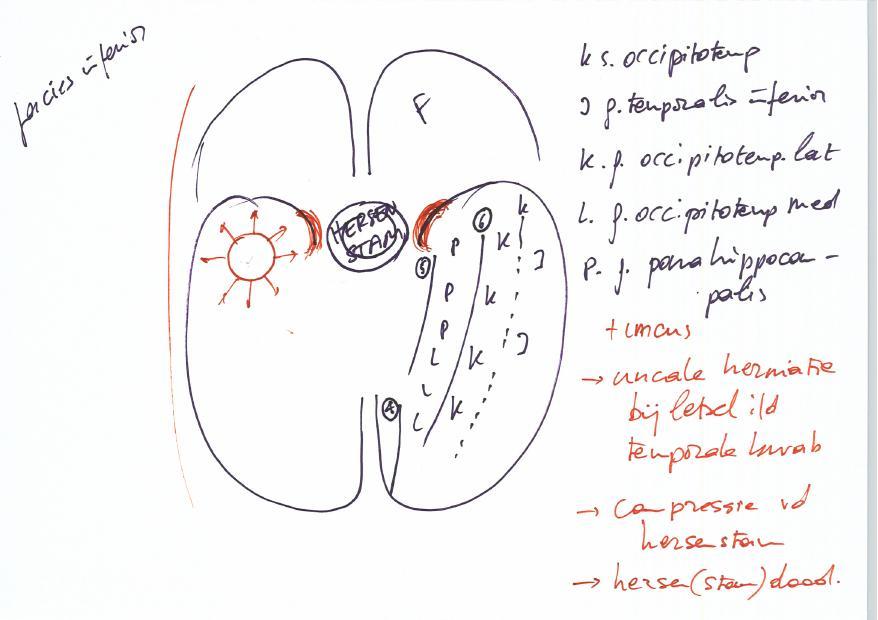 facies inferior
F
HERSEN
STAM
6
5
4
k
K
K
K
K
J
J
P
P
P
L
L
L
k s. occipitotemp
J g. temporalis inferior
k. g. occipitotemp. lat
L. g. occipitotemp med
P. g. parahippocam-
palis
+ uncus
→ uncale herniatie
bij letsel i/d
temporale kwab
→ compressie vd
hersenstam
→ hersen(stam)dood.